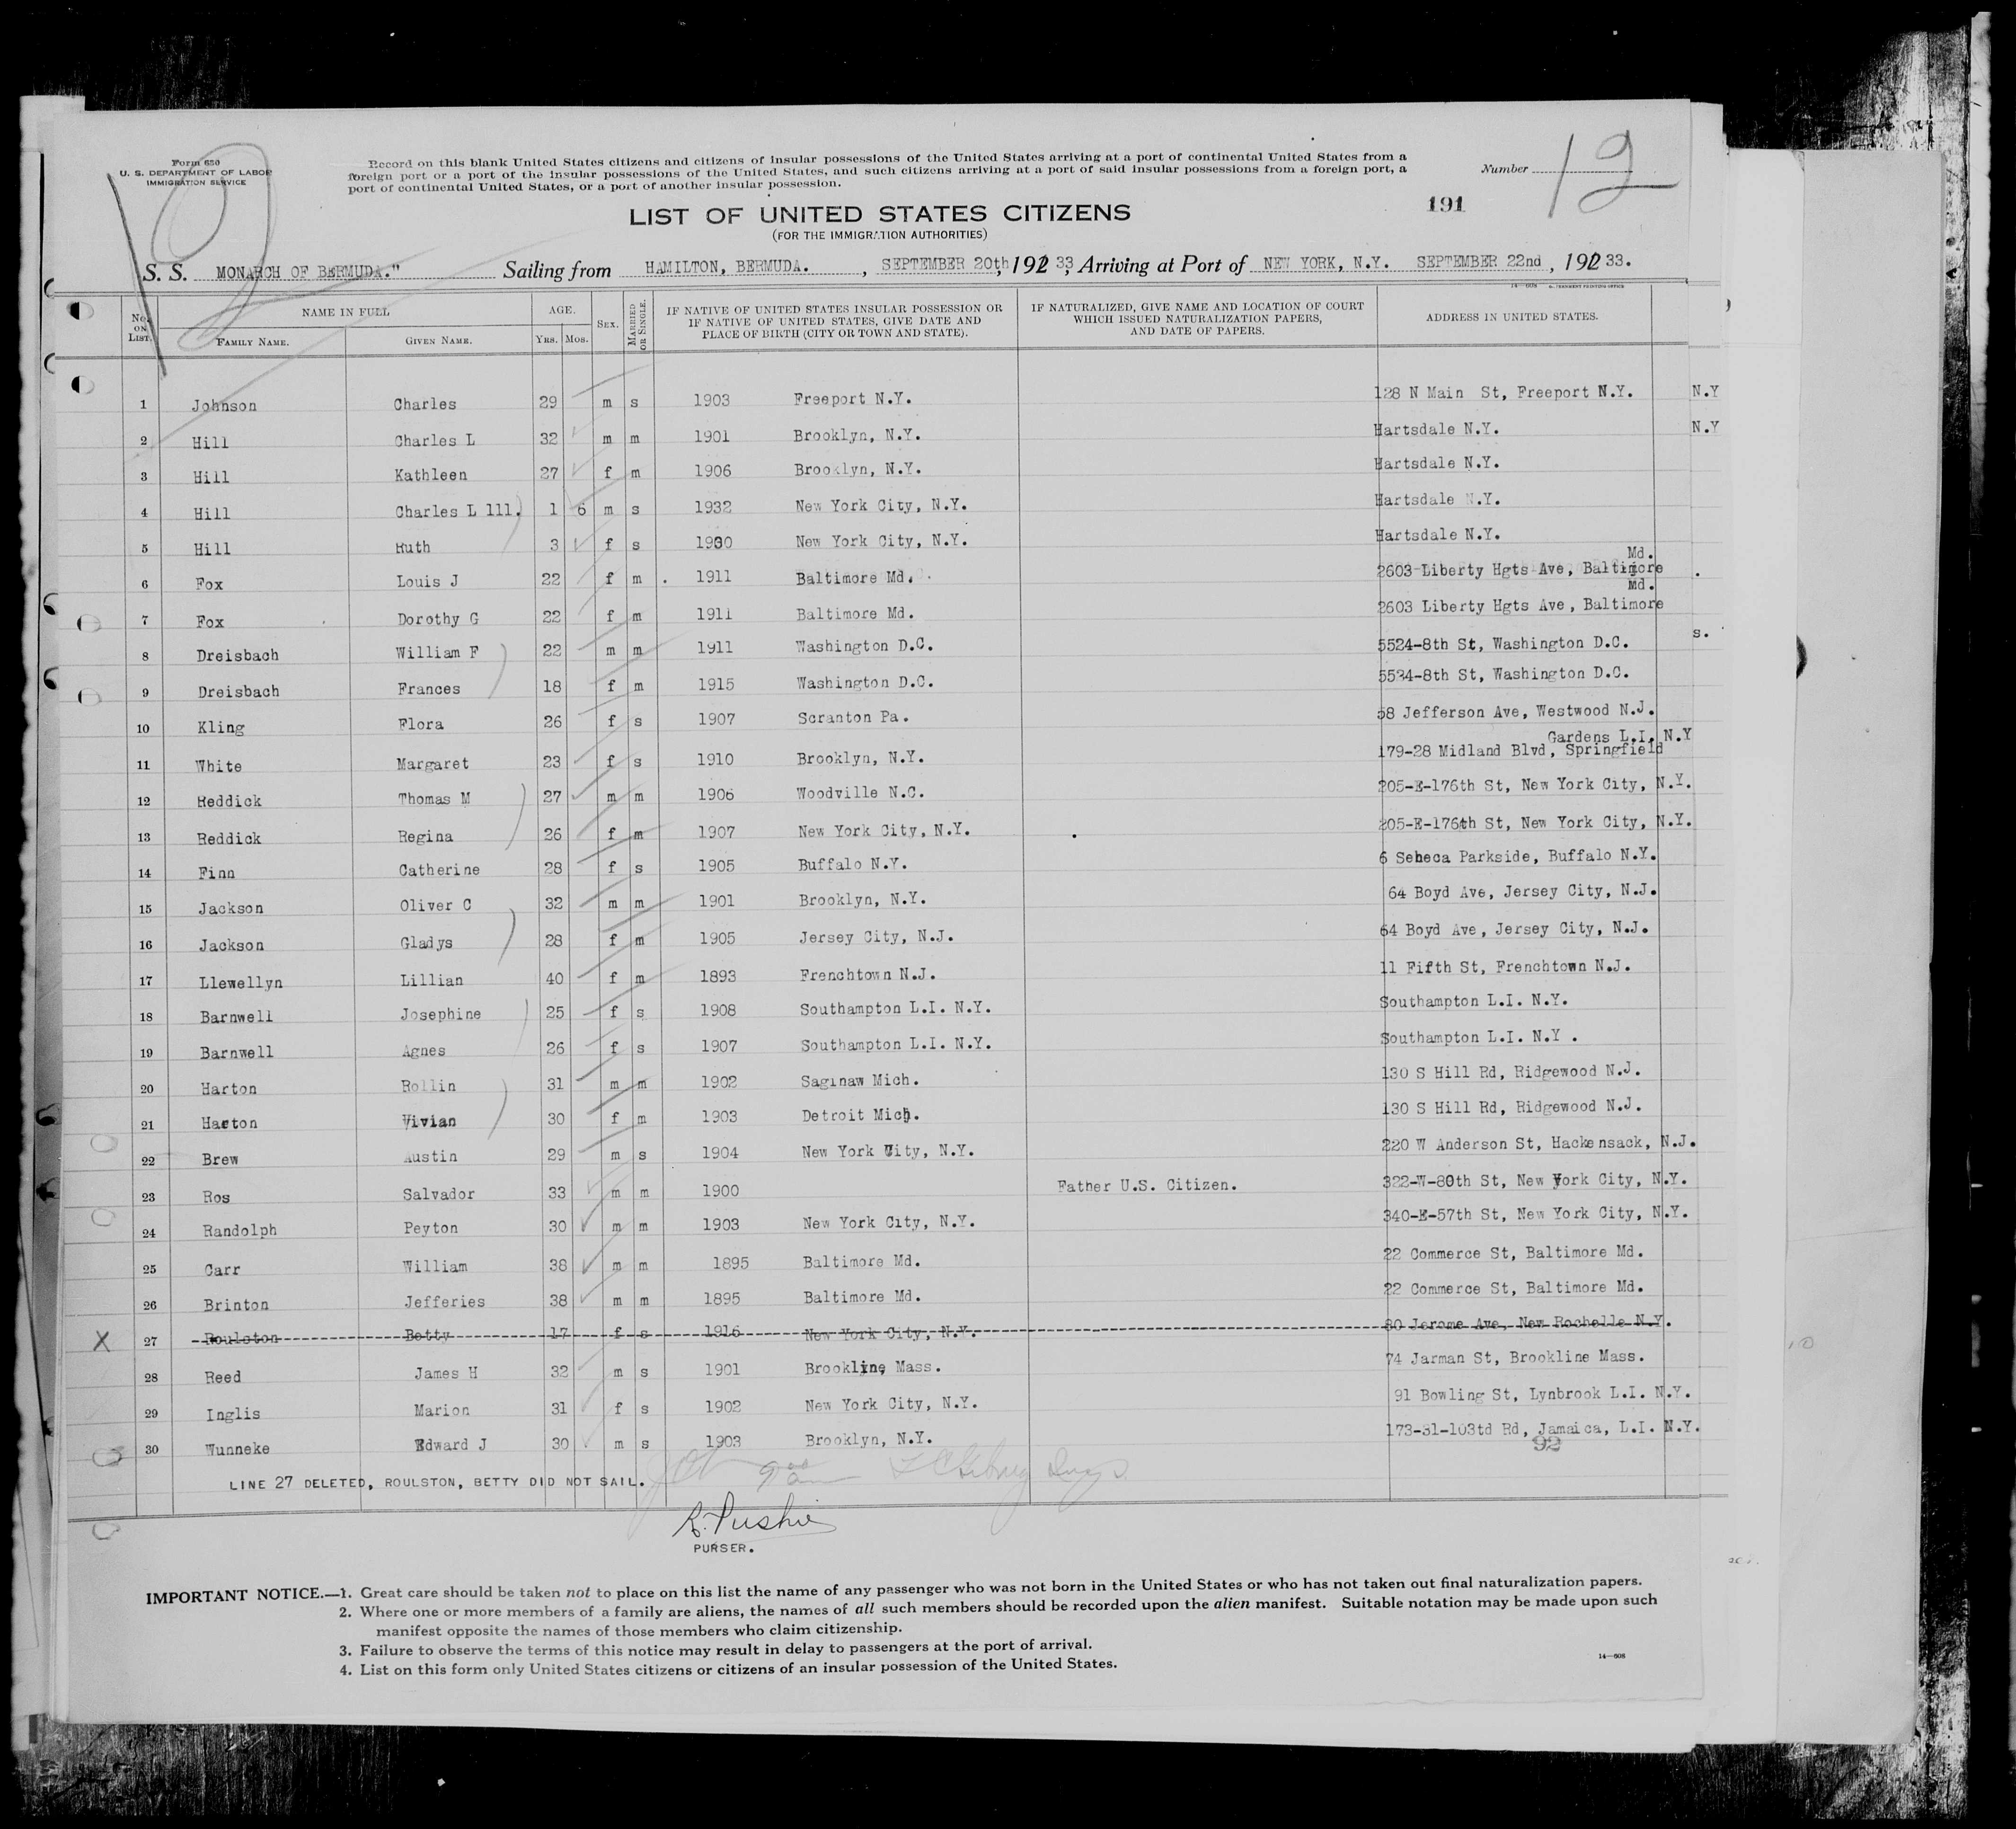 Form 630
U. S. DEPARTMENT OF LABOR
IMMIGRATION SERVICE
Record on this blank United States citizens and citizens of insular possessions of the United States arriving at a port of continental United States from a
foreign port or a port of the insular possessions of the United States, and such citizens arriving at a port of said insular possessions from a foreign port, a
port of continental United States, or a port of another insular possession.
Number 12
191
LIST OF UNITED STATES CITIZENS
(FOR THE IMMIGRATION AUTHORITIES)
S. S. MONARCH OF BERMUDA." Sailing from HAMILTON, BERMUDA. , SEPTEMBER 20th, 192 33, Arriving at Port of NEW YORK, N.Y. SEPTEMBER 22nd , 192 33.
No. ON LIST. NAME IN FULL FAMILY NAME. GIVEN NAME. AGE. YRS. MOS. SEX. MARRIED OR SINGLE. IF NATIVE OF UNITED STATES INSULAR POSSESSION OR IF NATIVE OF UNITED STATES, GIVE DATE AND PLACE OF BIRTH (CITY OR TOWN AND STATE). IF NATURALIZED, GIVE NAME AND LOCATION OF COURT WHICH ISSUED NATURALIZATION PAPERS, AND DATE OF PAPERS. ADDRESS IN UNITED STATES.
1 Johnson Charles 29 m s 1903 Freeport N.Y. 128 N Main St, Freeport N.Y. N.Y
2 Hill Charles L 32 m m 1901 Brooklyn, N.Y. Hartsdale N.Y. N.Y
3 Hill Kathleen 27 f m 1906 Brooklyn, N.Y. Hartsdale N.Y.
4 Hill Charles L lll. 1 6 m s 1932 New York City, N.Y. Hartsdale N.Y.
5 Hill Ruth 3 f s 1930 New York City, N.Y. Hartsdale N.Y.
6 Fox Louis J 22 f m . 1911 Baltimore Md. 2603-Liberty Hgts Ave, Baltimore Md.
7 Fox Dorothy G 22 f m 1911 Baltimore Md. 2603 Liberty Hgts Ave, Baltimore Md.
8 Dreisbach William F 22 m m 1911 Washington D.C. 5524-8th St, Washington D.C. s.
9 Dreisbach Frances 18 f m 1915 Washington D.C. 5534-8th St, Washington D.C.
10 Kling Flora 26 f s 1907 Scranton Pa. 58 Jefferson Ave, Westwood N.J.
11 White Margaret 23 f s 1910 Brooklyn, N.Y. 179-28 Midland Blvd, Springfield Gardens L.I. N.Y
12 Reddick Thomas M 27 m m 1906 Woodville N.C. 205-E-176th St, New York City, N.Y.
13 Reddick Regina 26 f m 1907 New York City, N.Y. 205-E-176th St, New York City, N.Y.
14 Finn Catherine 28 f s 1905 Buffalo N.Y. 6 Seneca Parkside, Buffalo N.Y.
15 Jackson Oliver C 32 m m 1901 Brooklyn, N.Y. 64 Boyd Ave, Jersey City, N.J.
16 Jackson Gladys 28 f m 1905 Jersey City, N.J. 64 Boyd Ave, Jersey City, N.J.
17 Llewellyn Lillian 40 f m 1893 Frenchtown N.J. 11 Fifth St, Frenchtown N.J.
18 Barnwell Josephine 25 f s 1908 Southampton L.I. N.Y. Southampton L.I. N.Y.
19 Barnwell Agnes 26 f s 1907 Southampton L.I. N.Y. Southampton L.I. N.Y .
20 Harton Rollin 31 m m 1902 Saginaw Mich. 130 S Hill Rd, Ridgewood N.J.
21 Harton Vivian 30 f m 1903 Detroit Mich. 130 S Hill Rd, Ridgewood N.J.
22 Brew Austin 29 m s 1904 New York City, N.Y. 220 W Anderson St, Hackensack, N.J.
23 Ros Salvador 33 m m 1900 Father U.S. Citizen. 322-W-80th St, New York City, N.Y.
24 Randolph Peyton 30 m m 1903 New York City, N.Y. 340-E-57th St, New York City, N.Y.
25 Carr William 38 m m 1895 Baltimore Md. 22 Commerce St, Baltimore Md.
26 Brinton Jefferies 38 m m 1895 Baltimore Md. 22 Commerce St, Baltimore Md.
X 27 Roulston Betty 17 f s 1916 New York City, N.Y. 80 Jerome Ave, New Rochelle N.Y.
28 Reed James H 32 m s 1901 Brookline Mass. 74 Jarman St, Brookline Mass.
29 Inglis Marion 31 f s 1902 New York City, N.Y. 91 Bowling St, Lynbrook L.I. N.Y.
30 Wunneke Edward J 30 m s 1903 Brooklyn, N.Y. 173-31-103td Rd, Jamaica, L.I. N.Y.
92
LINE 27 DELETED, ROULSTON, BETTY DID NOT SAIL.
R. Pushie
PURSER.
IMPORTANT NOTICE.—1. Great care should be taken not to place on this list the name of any passenger who was not born in the United States or who has not taken out final naturalization papers.
2. Where one or more members of a family are aliens, the names of all such members should be recorded upon the alien manifest. Suitable notation may be made upon such
manifest opposite the names of those members who claim citizenship.
3. Failure to observe the terms of this notice may result in delay to passengers at the port of arrival.
4. List on this form only United States citizens or citizens of an insular possession of the United States.
14—608